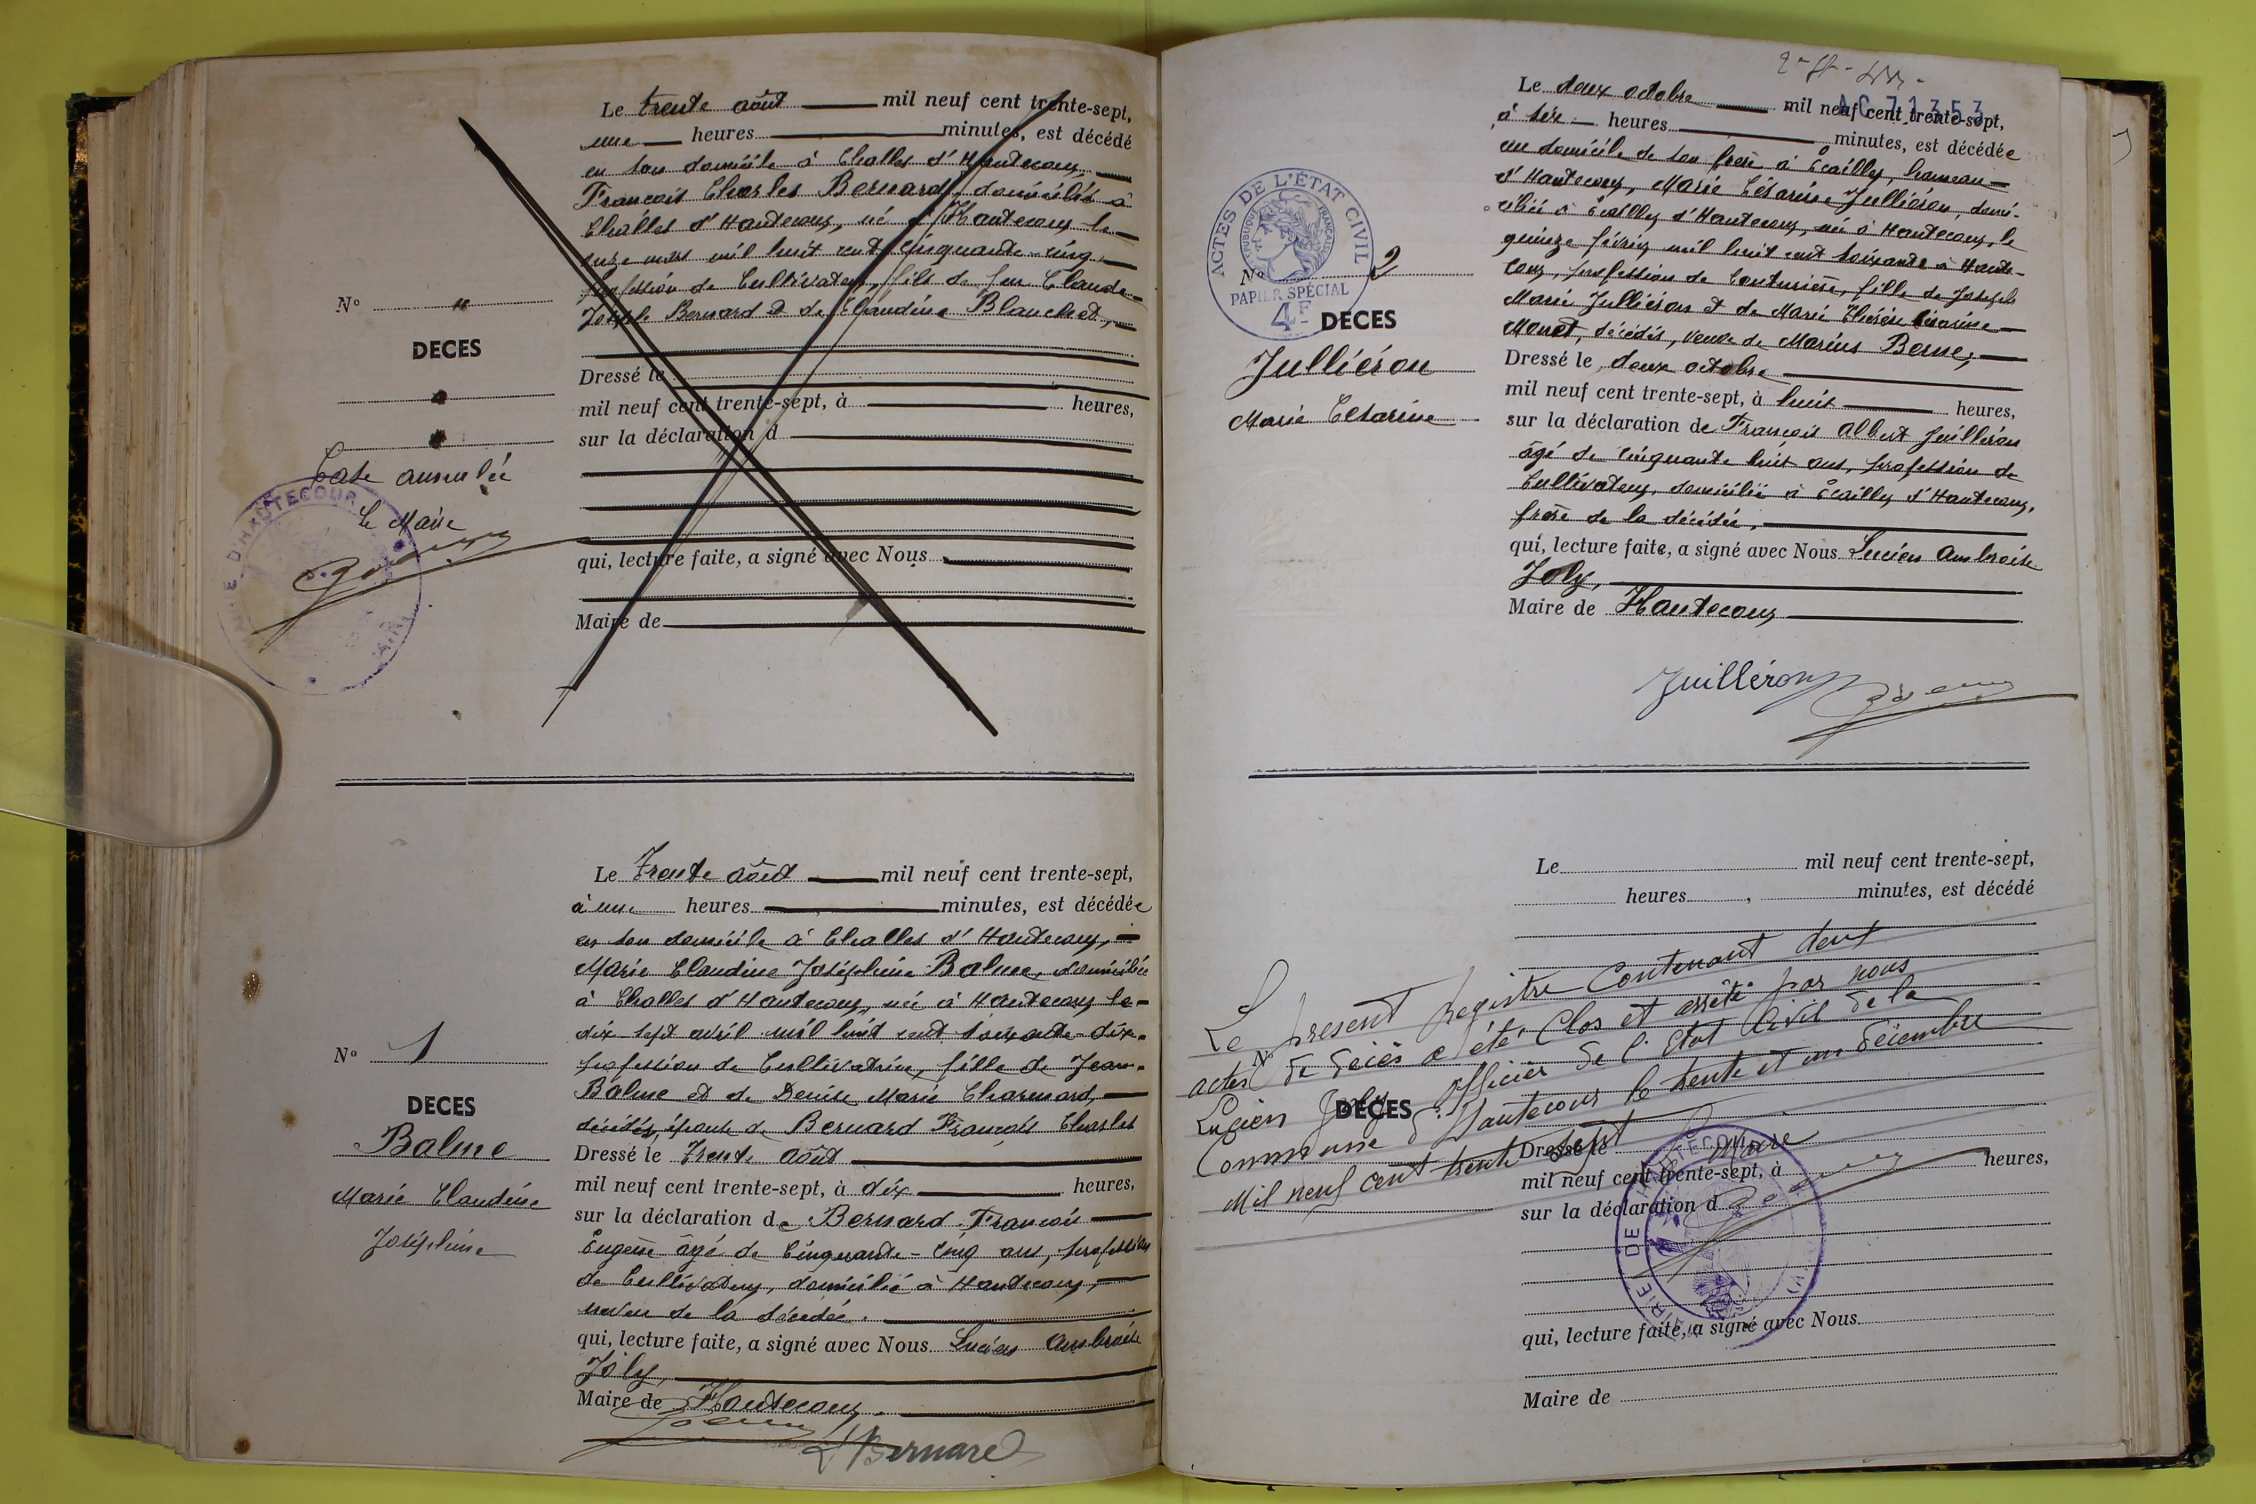 Le trente août mil neuf cent trente-sept,
une heures minutes, est décédé
en son domicile à Challes d'Hautecour,
François Charles Bernard, domicilié à
Challes d'Hautecour, né à Hautecour le
onze mars mil huit cent cinquante-cinq,
profession de Cultivateur, fils de feu Claude-
Joseph Bernard et de Claudine Blanchet,
No "
DECES
Dressé le
mil neuf cent trente-sept, à heures,
sur la déclaration d
Case annulée
Le Maire
MAIRIE D'HAUTECOUR
(AIN)
qui, lecture faite, a signé avec Nous
Maire de
Le Trente août mil neuf cent trente-sept,
à une heures minutes, est décédée
en son domicile à Challes d'Hautecour,
Marie Claudine Joséphine Balme, domiciliée
à Challes d'Hautecour, née à Hautecour le
dix sept avril mil huit cent soixante-dix
profession de Cultivatrice, fille de Jean
Balme et de Denise Marie Charnard,
décédés, épouse de Bernard François Charles
No 1
DECES
Balme
Marie Claudine
Joséphine
Dressé le Trente août
mil neuf cent trente-sept, à dix heures,
sur la déclaration de Bernard François
Eugène âgé de Cinquante-cinq ans, profession
de Cultivateur, domicilié à Hautecour,
neveu de la décédée.
qui, lecture faite, a signé avec Nous Lucien Ambroise
Joly,
Maire de Hautecour.
Bernard
AC 71353
Le deux octobre mil neuf cent trente-sept,
à six heures minutes, est décédée
au domicile de son frère à Écailly, hameau
d'Hautecour, Marie Césarine Julliéron, domi-
ciliée à Écailly d'Hautecour, née à Hautecour, le
quinze février mil huit cent soixante à Haute-
cour, profession de Couturière, fille de Joseph
Marie Julliéron et de Marie Thérèse Césarine
Monet, décédés, veuve de Marius Berne,
ACTES DE L'ÉTAT CIVIL
RÉPUBLIQUE FRANÇAISE
PAPIER SPÉCIAL
4F
No 2
DECES
Julliéron
Marie Césarine
Dressé le deux octobre
mil neuf cent trente-sept, à huit heures,
sur la déclaration de François Albert Juilléron
âgé de cinquante huit ans, profession de
Cultivateur, domicilié à Écailly d'Hautecour,
frère de la décédée,
qui, lecture faite, a signé avec Nous Lucien Ambroise
Joly,
Maire de Hautecour
Juilléron
Le mil neuf cent trente-sept,
heures, minutes, est décédé
No
DECES
Le présent registre contenant deux
actes de décès a été clos et arrêté par nous
Lucien Joly Officier de l'Etat Civil de la
Commune d'Hautecour le trente et un décembre
Mil neuf cent trente sept
Maire
Dressé le
mil neuf cent trente-sept, à heures,
sur la déclaration d
MAIRIE DE HAUTECOUR
(AIN)
qui, lecture faite, a signé avec Nous
Maire de